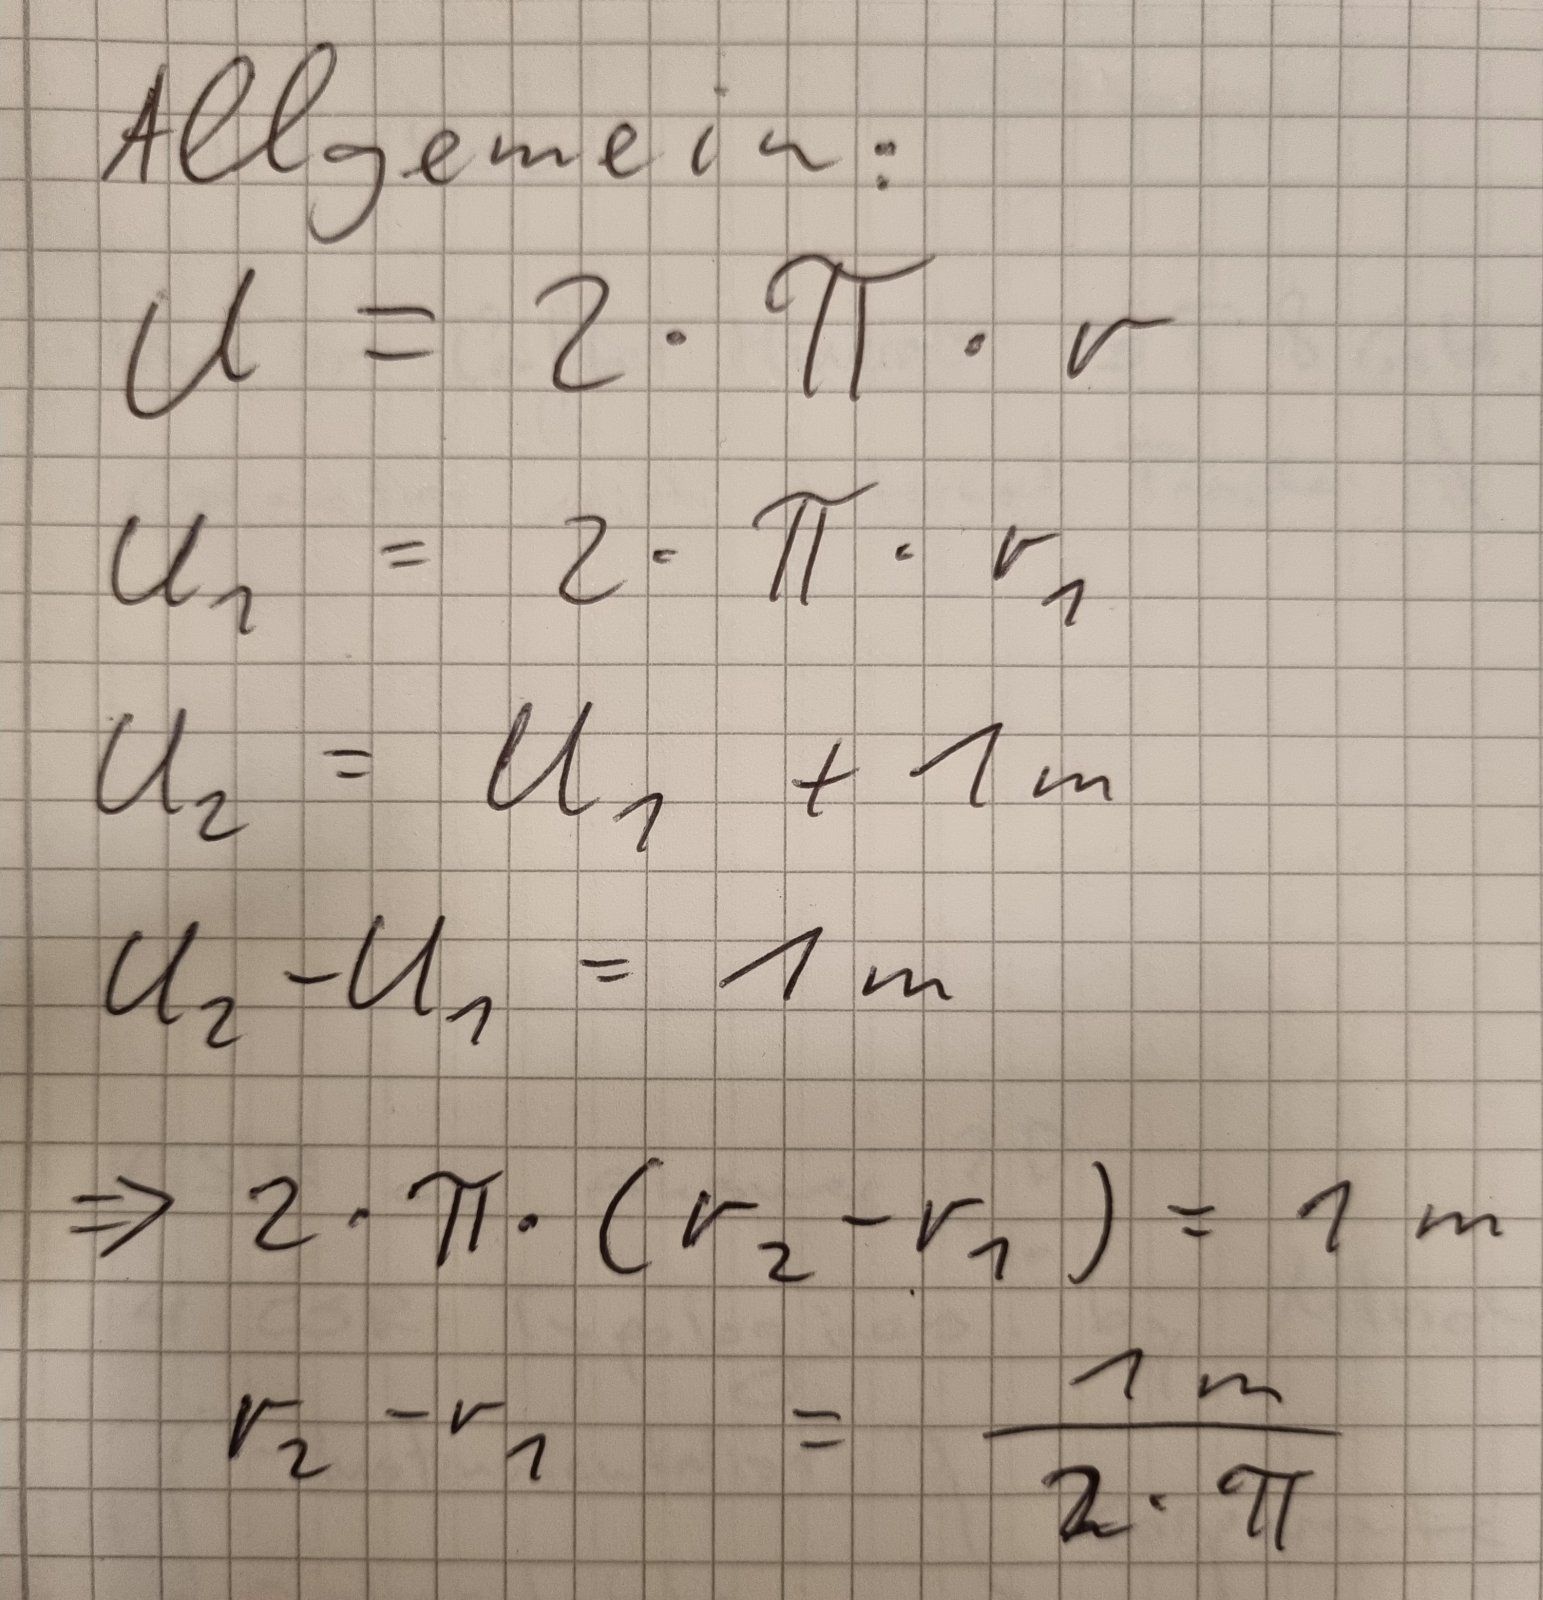 Allgemein:
U = 2 · π · r
U₁ = 2 · π · r₁
U₂ = U₁ + 1 m
U₂ - U₁ = 1 m
⇒ 2 · π · (r₂ - r₁) = 1 m
r₂ - r₁ = 1 m / 2 · π